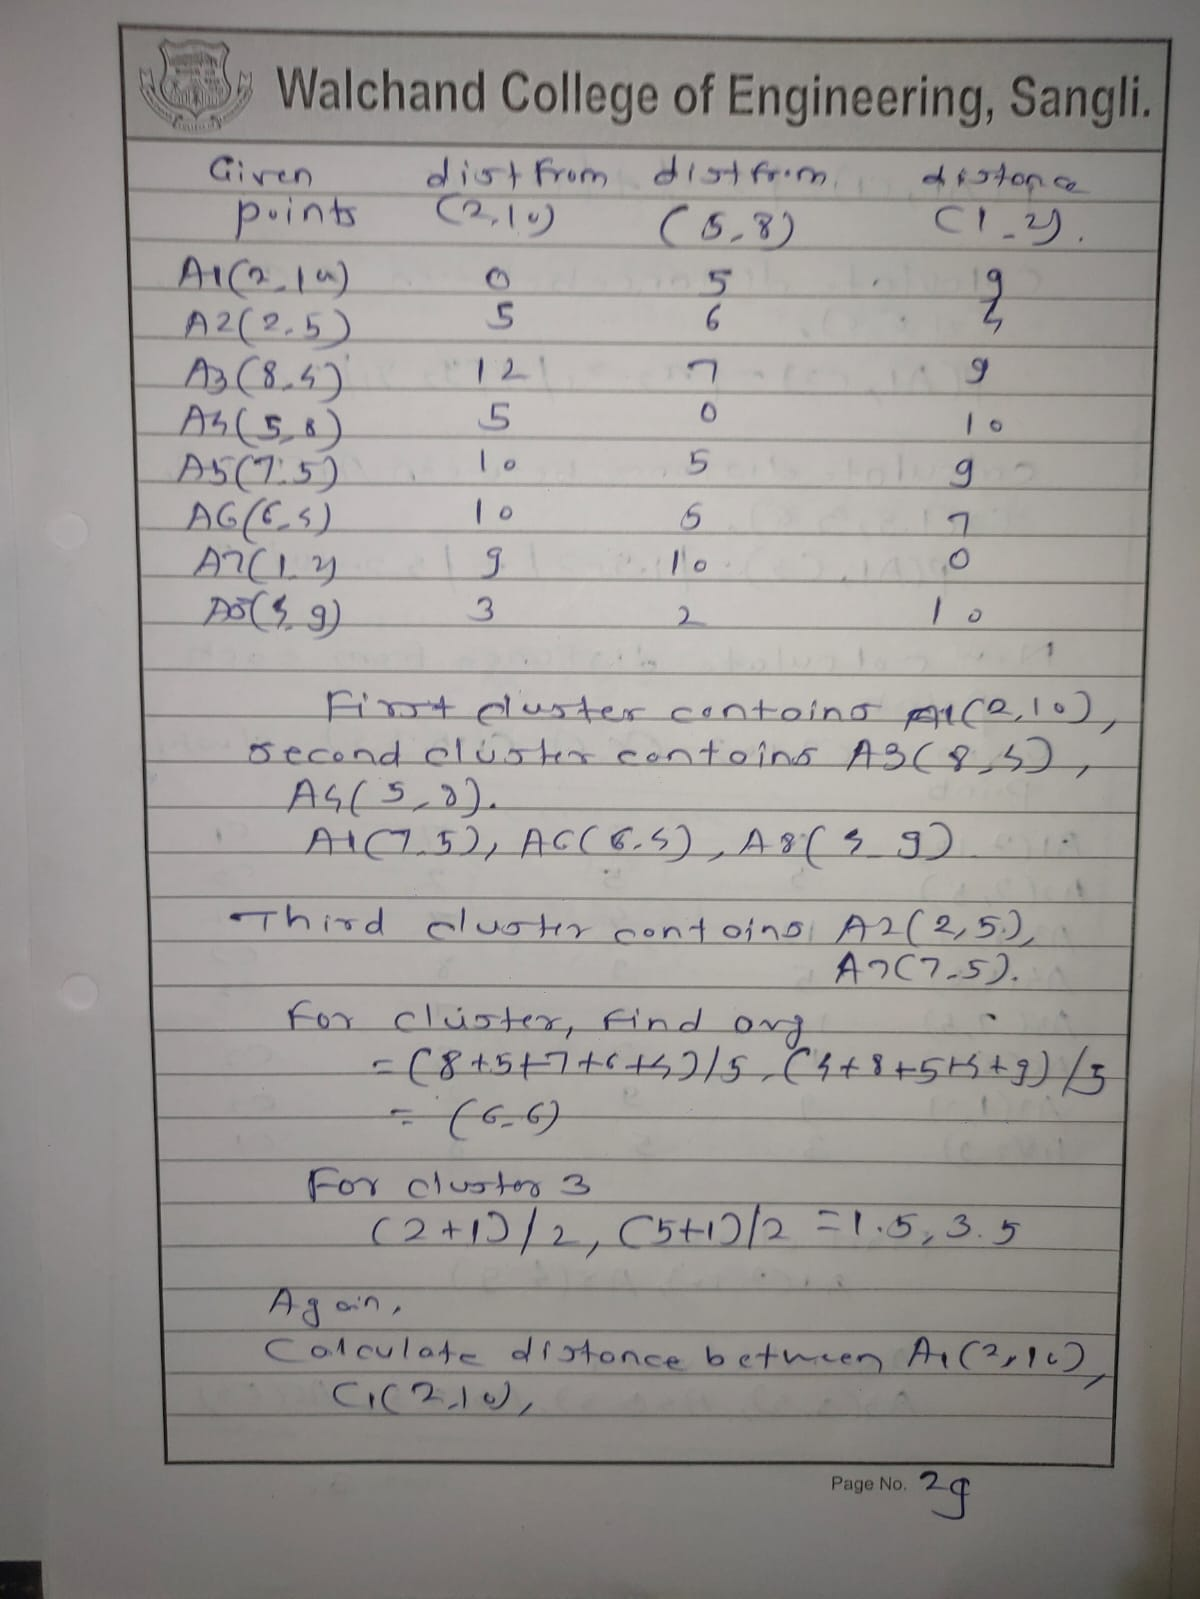 Walchand College of Engineering, Sangli.
Given dist from dist from distance
points (2,10) (5,8) (1,2).
A1(2,10) 0 5 9
A2(2,5) 5 6 4
A3(8,4) 12 7 9
A4(5,8) 5 0 10
A5(7,5) 10 5 9
A6(6,4) 10 5 7
A7(1,2) 9 10 0
A8(4,9) 3 2 10
First cluster contains A1(2,10),
second cluster contains A3(8,4),
A4(5,8).
A1(7,5), A6(6,4), A8(4,9)
Third cluster contains A2(2,5),
A7(7,5).
For cluster, find avg
=(8+5+7+6+4)/5,(4+8+5+4+9)/5
= (6,6)
For cluster 3
(2+1)/2, (5+1)/2 =1.5,3.5
Again,
Calculate distance between A1(2,10),
C1(2,10),
Page No. 29